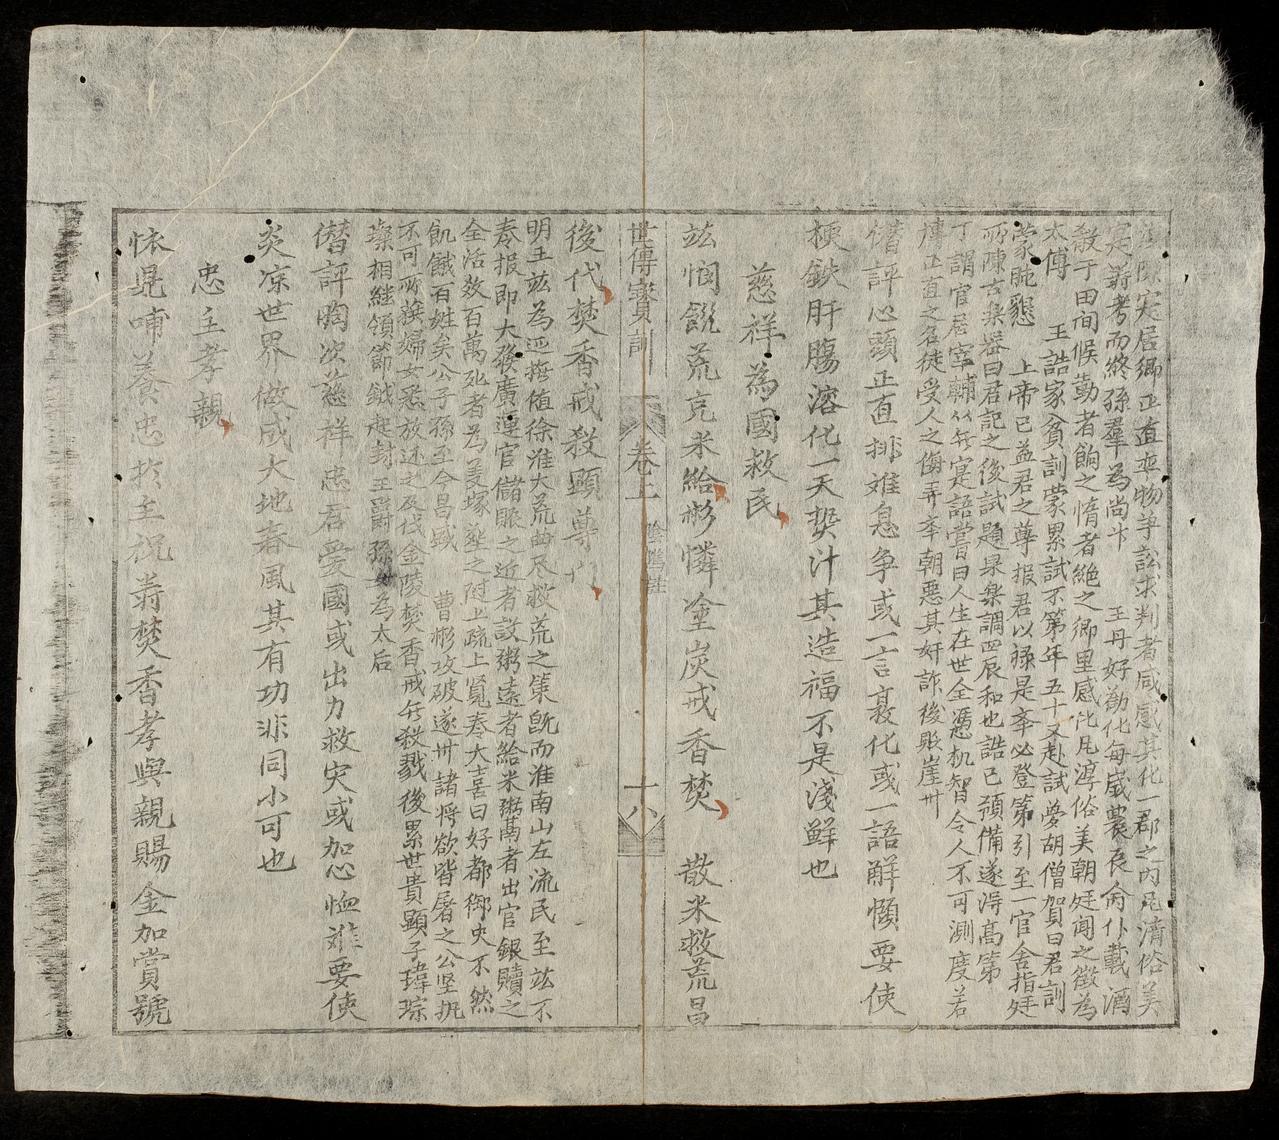 陳寔居鄉正直平物爭訟求判者咸感其化一郡之內風清俗美
寔壽考而終孫羣為尚卡 王丹好勸化每歲農辰俞仆載酒
殽于田间候勤者餉之惰者絶之鄉里感化風淳俗美朝廷闻之徵為
太傅 王誥家貧訓蒙累試不第年五十又赴試夢胡僧賀曰君訓
蒙肫懇 上帝已益君之尊报君以禄是年必登第引至一官舍指廷
所陳古樂器曰君記之後試題果樂調四辰和也誥已預備遂淂高第
丁謂官居宰輔從無寔語嘗曰人生在世全憑机智令人不可測度若
摶正直之名徒受人之侮弄本朝惡其奸詐後貶崖州
僣評心頭正直排难息争或一言裒化或一語觧懶要使
梗鉄肝膓溶化一天㮣汁其造福不是淺鮮也
慈祥為國救民
竑悯飢荒克米給彬憐塗炭戒香焚 散米救荒昌
世傳寶訓 卷上 陰隲註 十八
後代焚香戒殺顕尊门
明王竑為廵撫值徐淮大荒曲尽救荒之策旣而淮南山左流民至竑不
奏报即大發廣運官儲賑之近者設粥遠者給米粥萬者出官銀贖之
全活数百萬死者為义塚葬之过上疏上覧奏大喜曰好都御史不然
飢餓百姓矣公子孫至今昌盛 曹彬攻破遂州諸将欲皆屠之公坚执
不可所擄婦女悉放还之及伐金陵焚香戒無殺戮後累世貴顕子瑋琮
璨相継領節鉞赴封王爵孫女為太后
僣評胸次慈祥忠君愛國或出力救灾或加心恤难要使
炎凉世界做成大地春風其有功非同小可也
忠主孝親
怵見哺養忠扵主祝壽焚香孝與親賜金加賞號